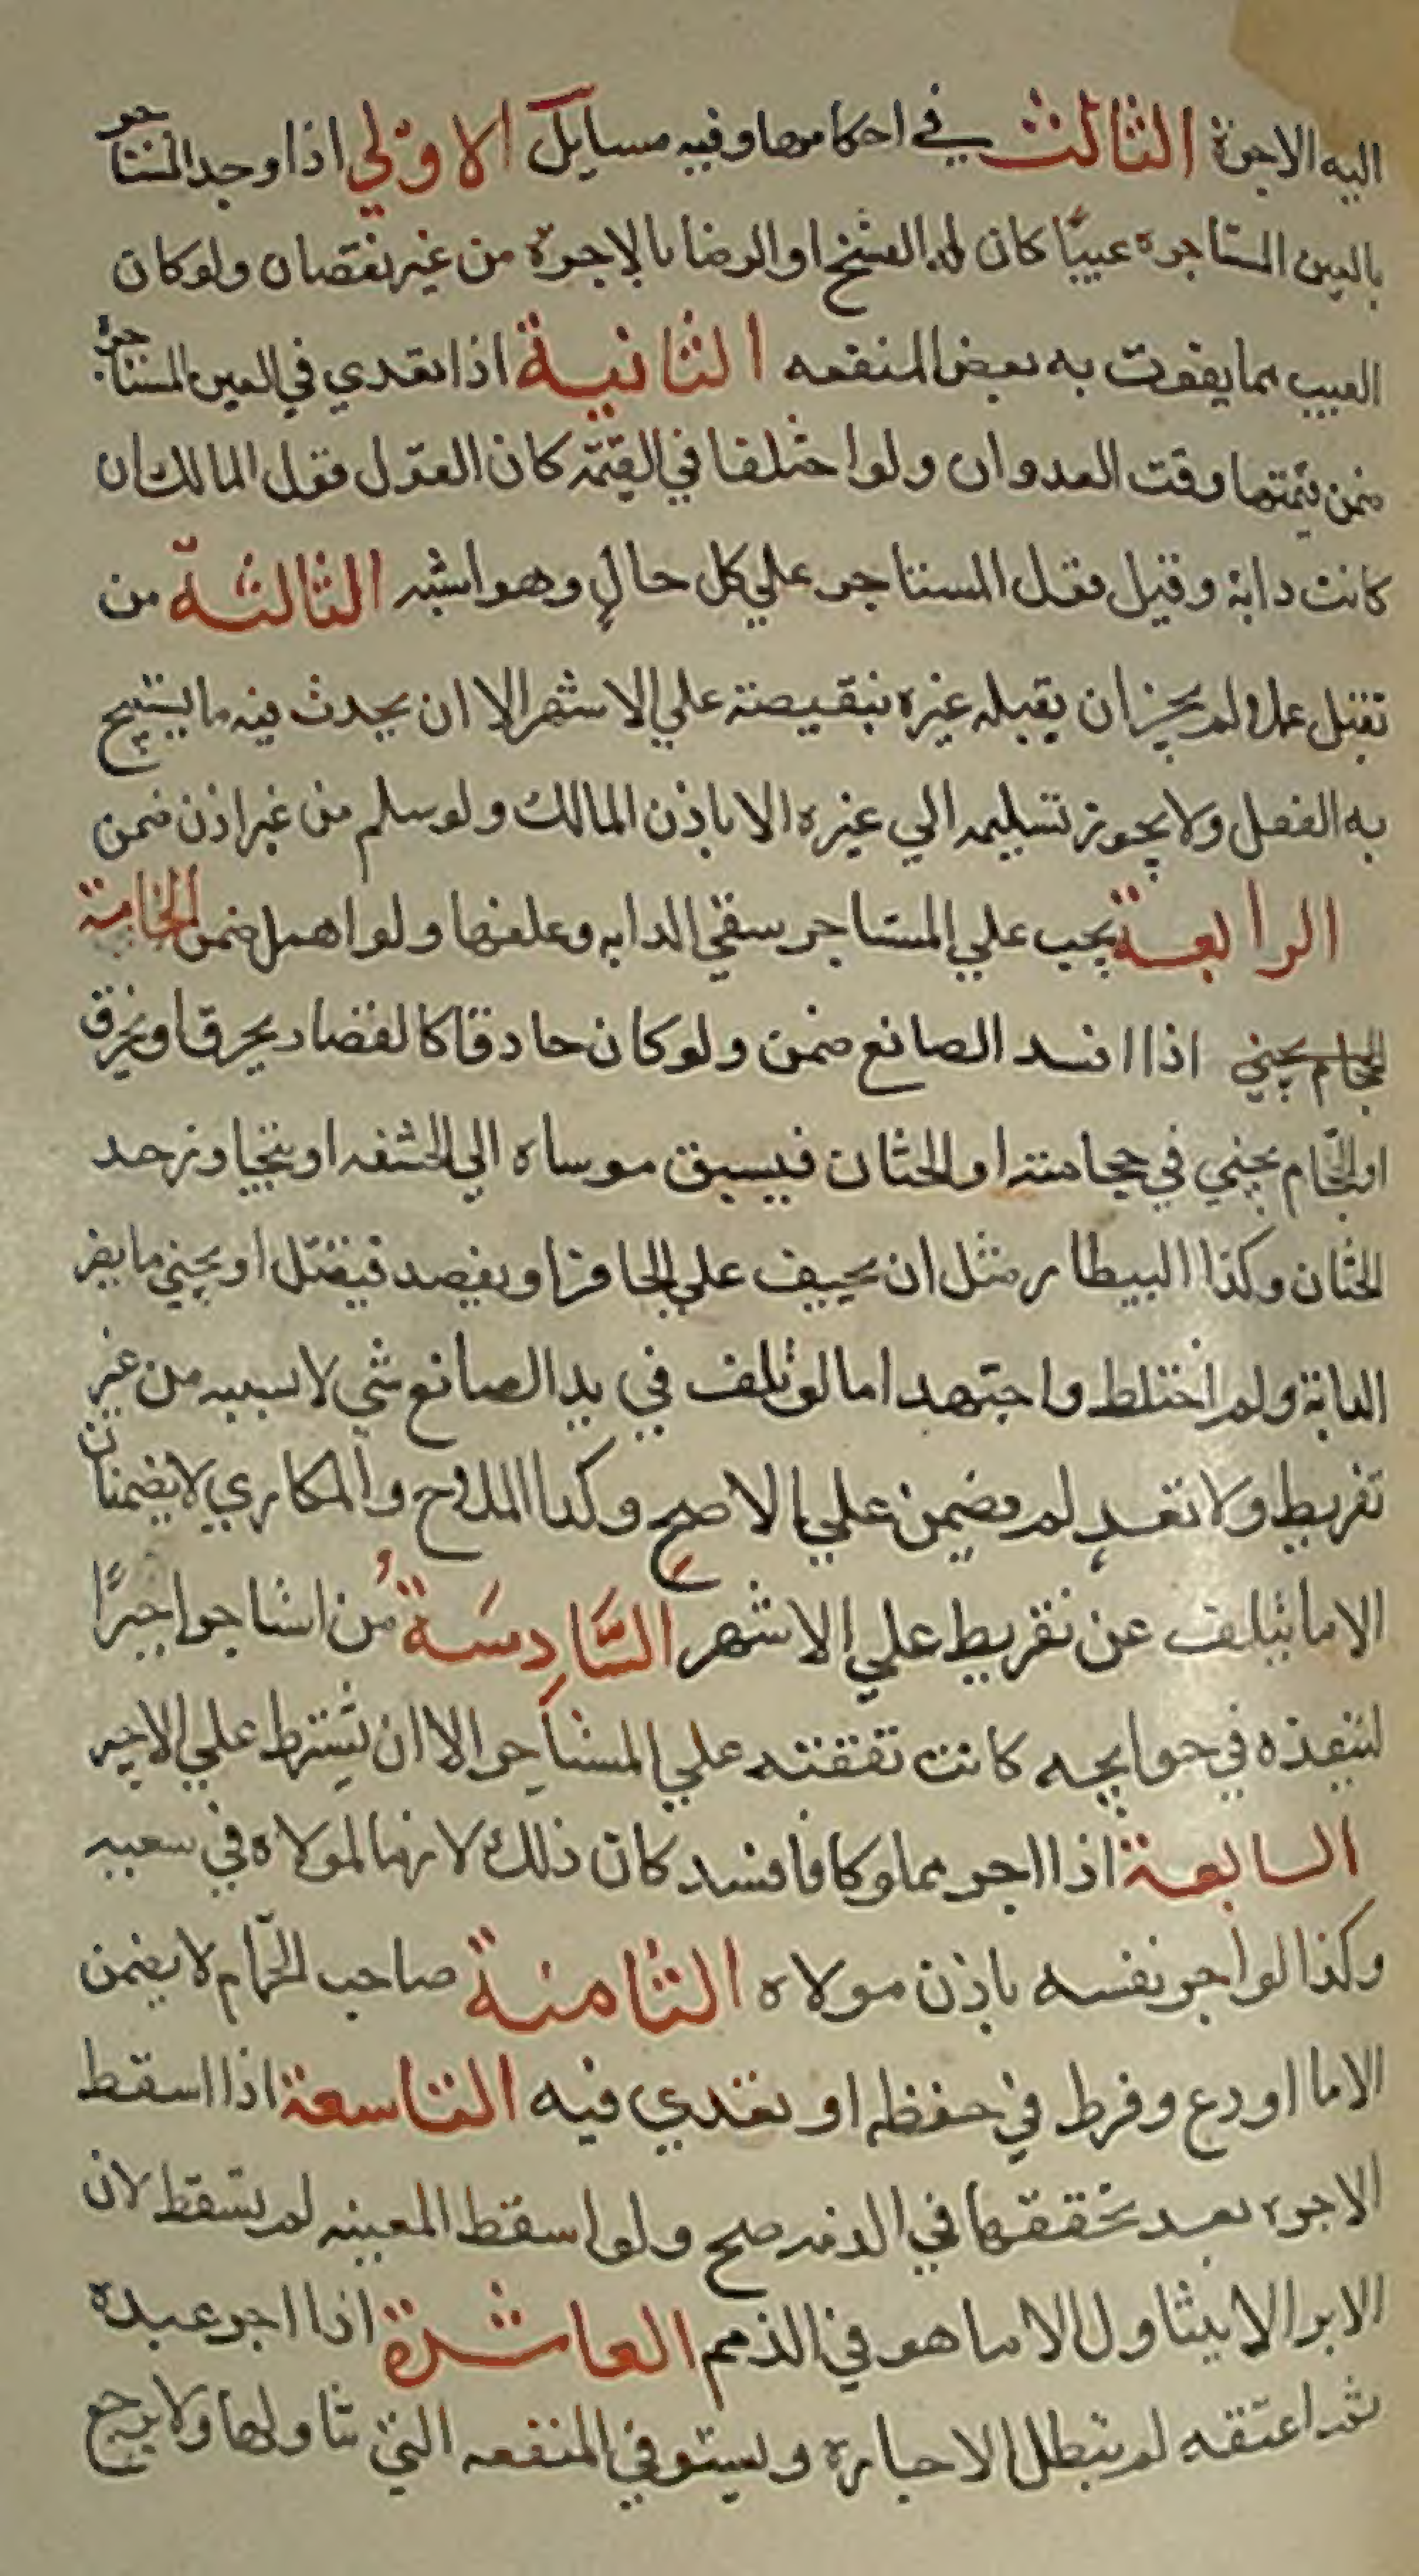 اليه الاجرة الثالث في احكامها وفيه مسايل الاولي اذا وجد المستاجر
بالعين المستاجره عيبًا كان له الفسخ او الرضا بالاجرة من غير نقصان ولو كان
العيب مما يفوت به بعض المنفعه الثانية اذا تعدي في العين المستاجرة
ضمن قيمتها وقت العدوان ولو اختلفا في القيمة كان القول قول المالك ان
كانت دابة وقيل قول المستاجر علي كل حالٍ وهو اشبه الثالثة من
تقبل عملا ولم يجز ان يقبله غيره بنقيصة علي الاشهر الا ان يحدث فيه ما يستبيح
به الفضل ولا يجوز تسليمه الي غيره الا باذن المالك ولو سلم من غير اذن ضمن
الرابعة يجب علي المستاجر سقي الدابه وعلفها ولو اهمل ضمن الخامسة
الحجام يجني اذا افسد الصانع ضمن ولو كان حادقا كالقصار يحرق او يخرق
او الحجّام يجني في حجامته او الختان فيسبق موساه الي الحشفه او يتجاوز حد
الختان وكذا البيطار مثل ان يحيف علي الحافر او يفصد فيقتل او يجني ما يضر
الدابة ولم اختلط واجتهد اما لو تلف في يد الصانع شي لا بسببه من غير
تفريط ولا تعدٍ لم يضمن علي الاصح وكذا الملاح والمكاري لا يضمنان
الا ما يتلف عن تفريط علي الاشهر السَّادِسَةُ من استاجر اجيرًا
لينفذه في حوايجه كانت نفقته علي المستاجر الا ان يشترط علي الاجير
السابعة اذا اجر مملوكا فافسد كان ذلك لازما لمولاه في سعيه
وكذا لو اجر نفسه باذن مولاه الثامنة صاحب الحمّام لا يضمن
الا ما اودع وفرط في حفظه او تعدي فيه التاسعة اذا اسقط
الاجره بعد تحققها في الذمه صح ولو اسقط المعينه لم يسقط لان
الابرا لا يتناول الا ما هو في الذمم العاشرة اذا اجر عبده
ثم اعتقه لم تبطل الاجارة ويستوفي المنفعه التي تناولها ولا يرجع